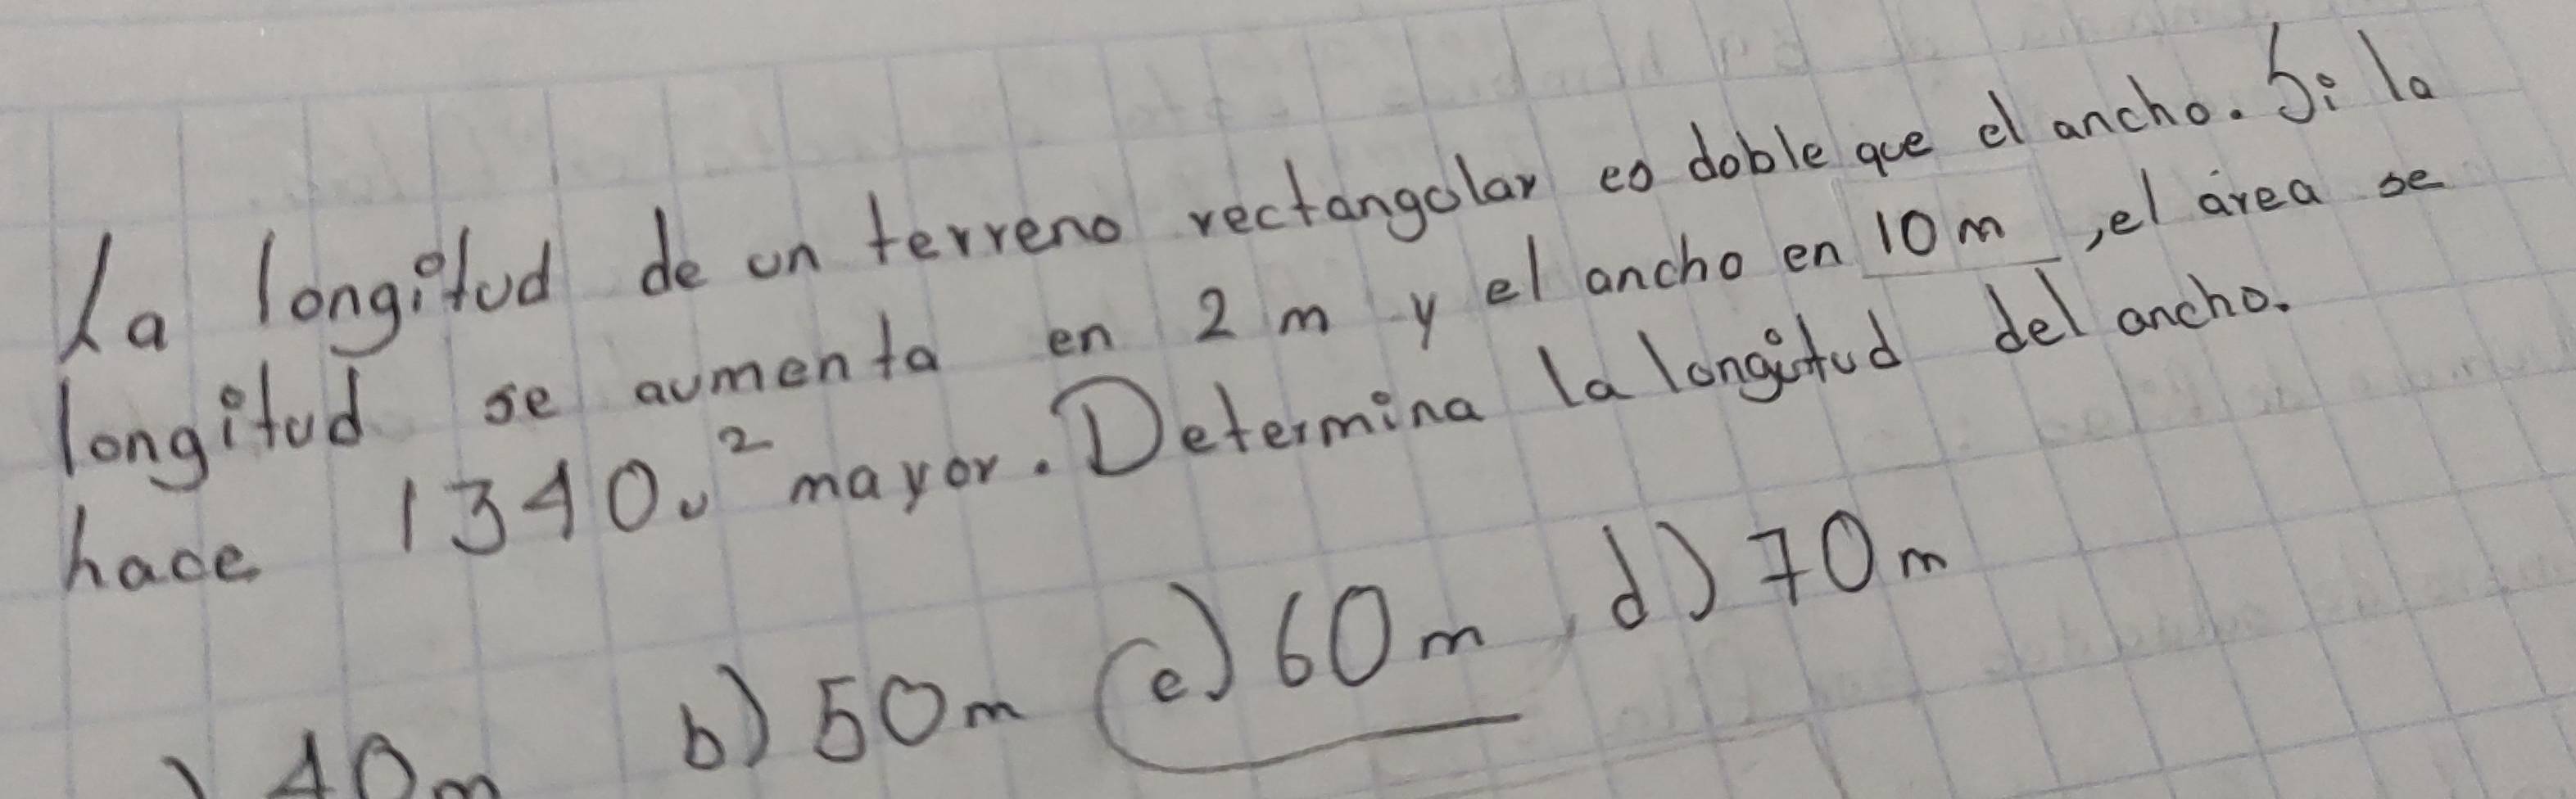 La longitud de un terreno rectangular es doble que el ancho. Si la
longitud se aumenta en 2 m y el ancho en 10 m, el área se
hace 1340u² mayor. Determina la longitud del ancho.
) 40m b) 50m c) 60m d) 70m